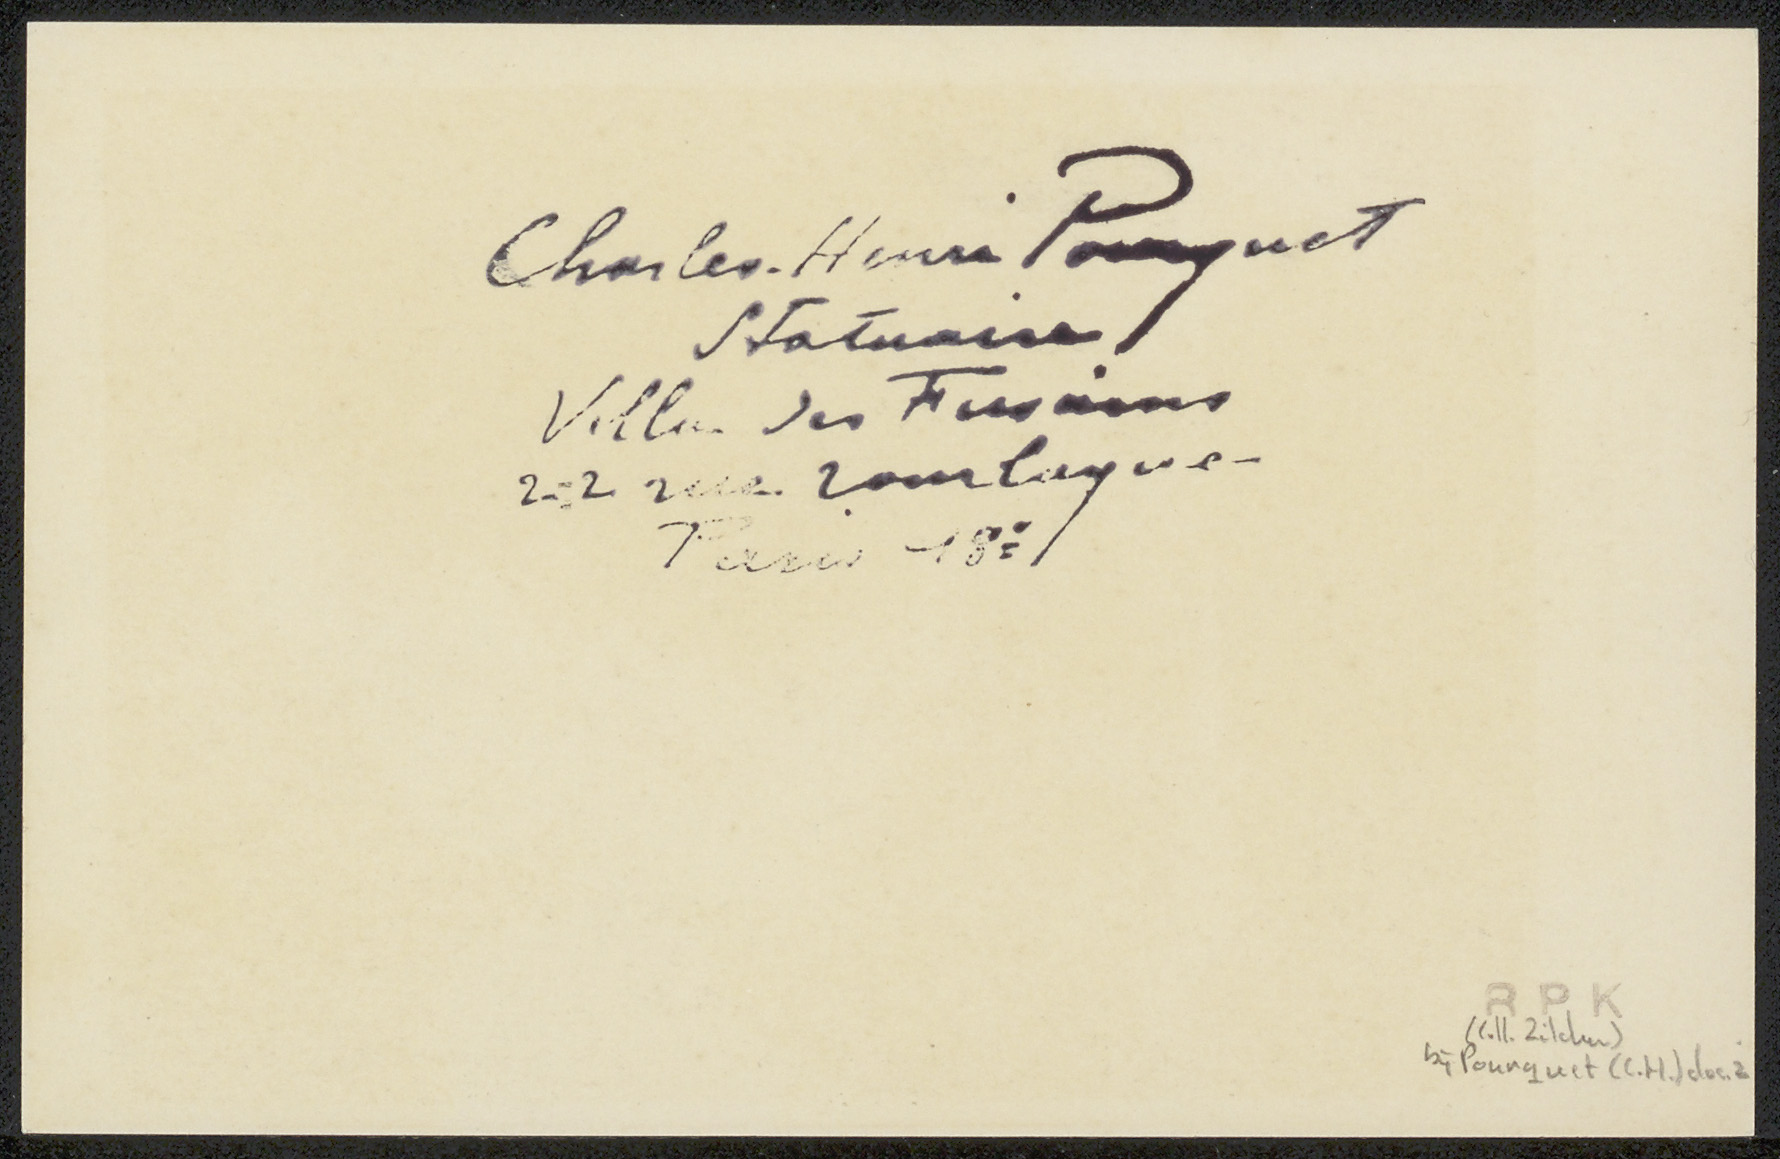 Charles-Henri Pourquet
Statuaire
Villa des Fusains
22 rue Tourlaque
Paris 18e
R P K
(C.H. Zilcken)
bij Pourquet (C.H.) doc. 2